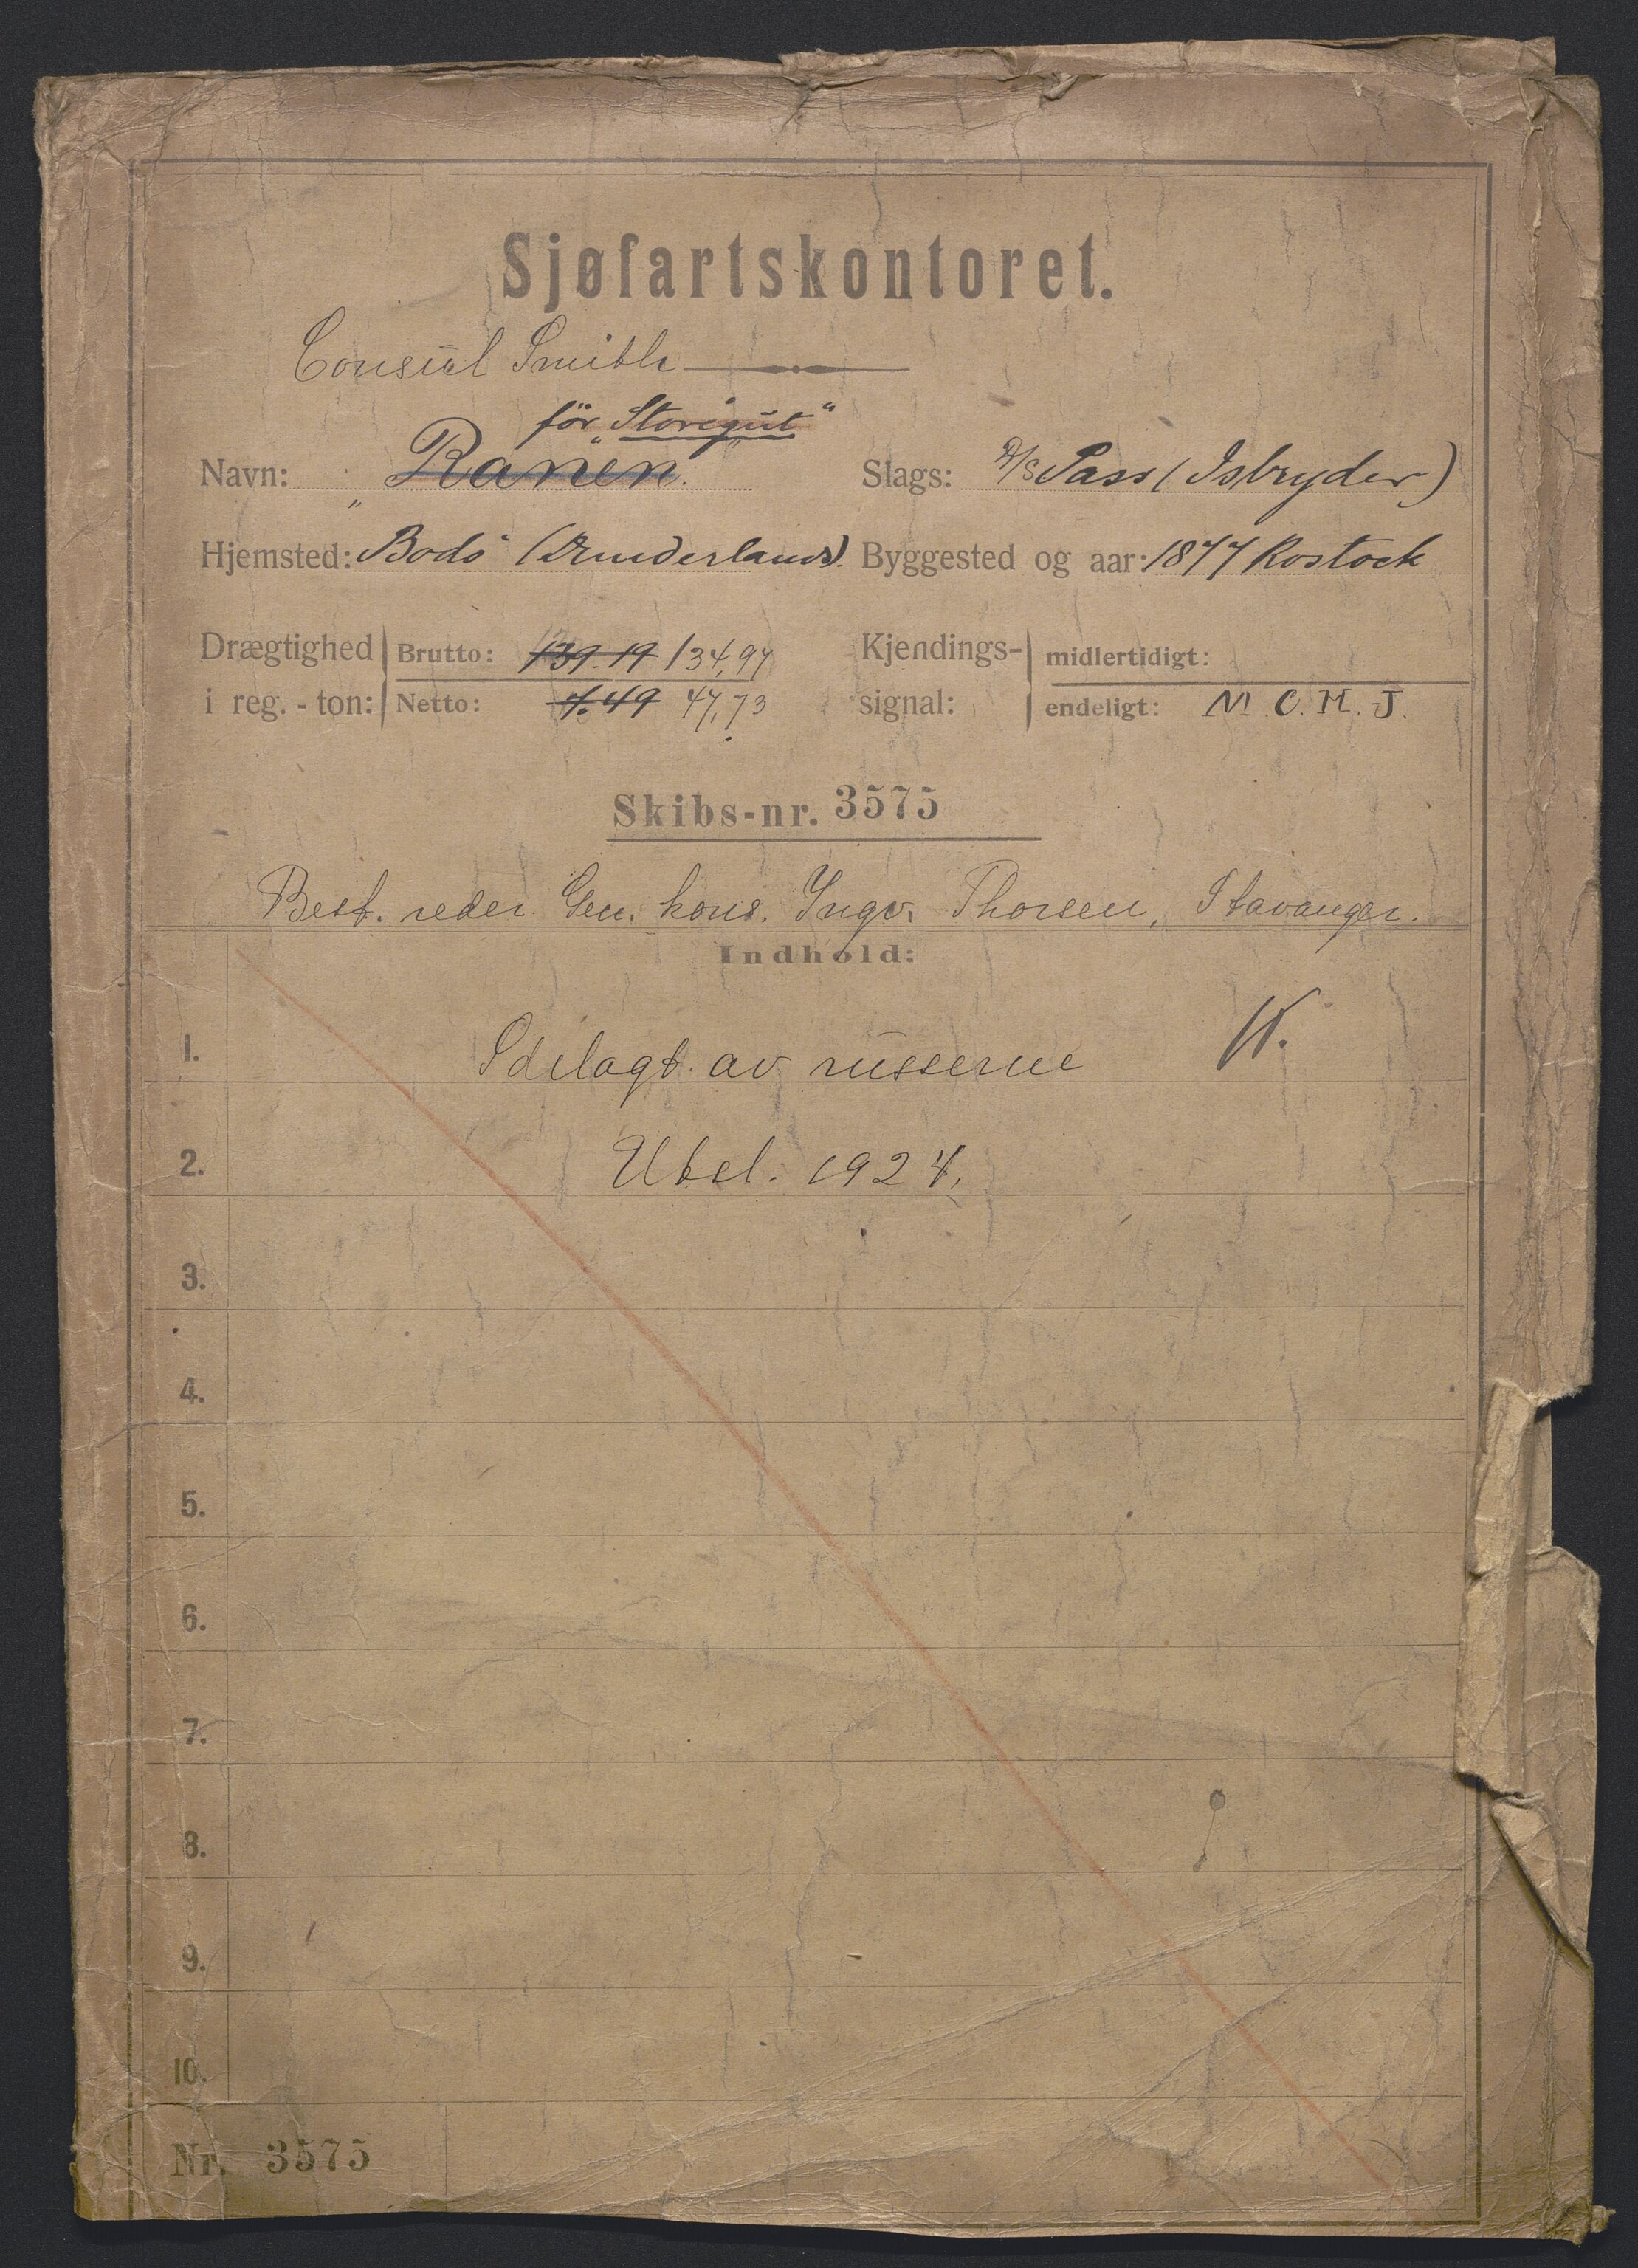 Sjøfartskontoret.
Consul Smith
för „Storegut“
Navn: „Ranen“. Slags: D/S Pass (Isbryder)
Hjemsted: Bodö Byggested og aar: 1877 Rostock
Drægtighed i reg.-ton: Brutto: 139.19 134,97 Kjendings-signal: midlertidigt:
Netto: 7.49 47,73 endeligt: M.C.H.J.
Skibs-nr. 3575
Best. reder Gen. kons. Ingv. Thorsen, Stavanger.
Indhold:
1. Ødelagt av russerne
2. Utsl. 1924.
3.
4.
5.
6.
7.
8.
9.
10.
Nr. 3575